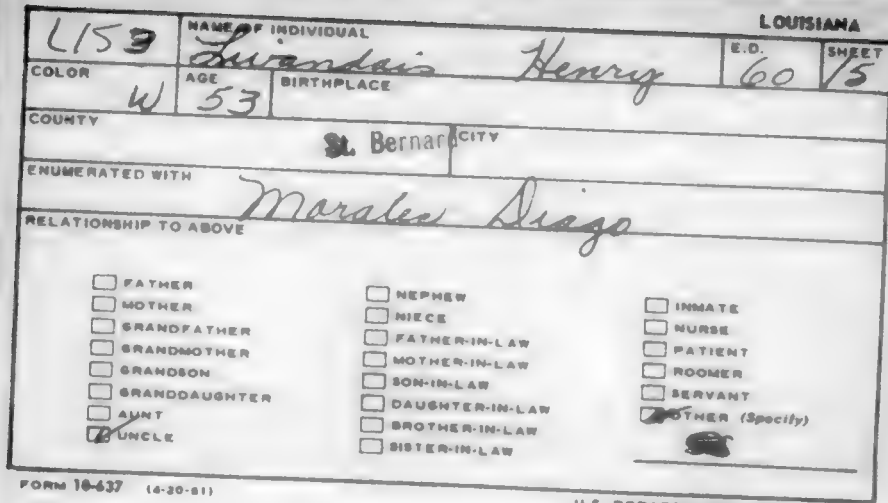 LOUISIANA
L153 NAME OF INDIVIDUAL Livandais Henry E.D. 60 SHEET 15
COLOR W AGE 53 BIRTHPLACE
COUNTY St. Bernard CITY
ENUMERATED WITH Morales Diago
RELATIONSHIP TO ABOVE
FATHER
MOTHER
GRANDFATHER
GRANDMOTHER
GRANDSON
GRANDDAUGHTER
AUNT
UNCLE
NEPHEW
NIECE
FATHER-IN-LAW
MOTHER-IN-LAW
SON-IN-LAW
DAUGHTER-IN-LAW
BROTHER-IN-LAW
SISTER-IN-LAW
INMATE
NURSE
PATIENT
ROOMER
SERVANT
OTHER (Specify)
FORM 10-637 (4-20-61)